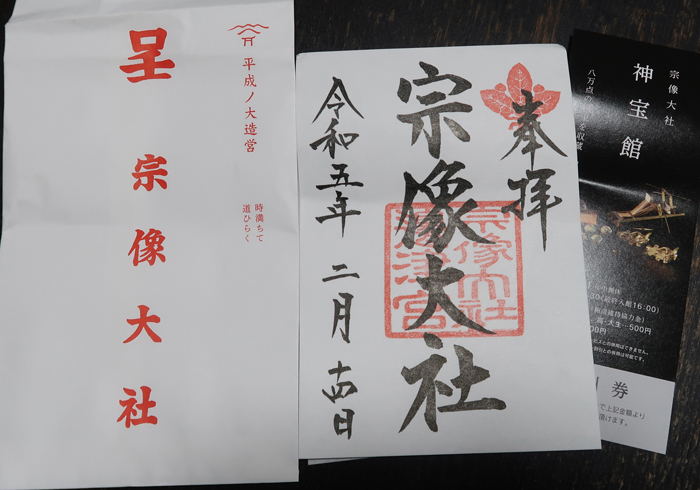 呈
宗像大社
平成ノ大造営
時満ちて
道ひらく
奉拝
宗像大社
宗像大社
令和五年 二月 十四日
宗像大社
神宝館
八万点の
を収蔵
(最終入館16:00)
高・大生…500円
券
で上記金額より
頂けます。